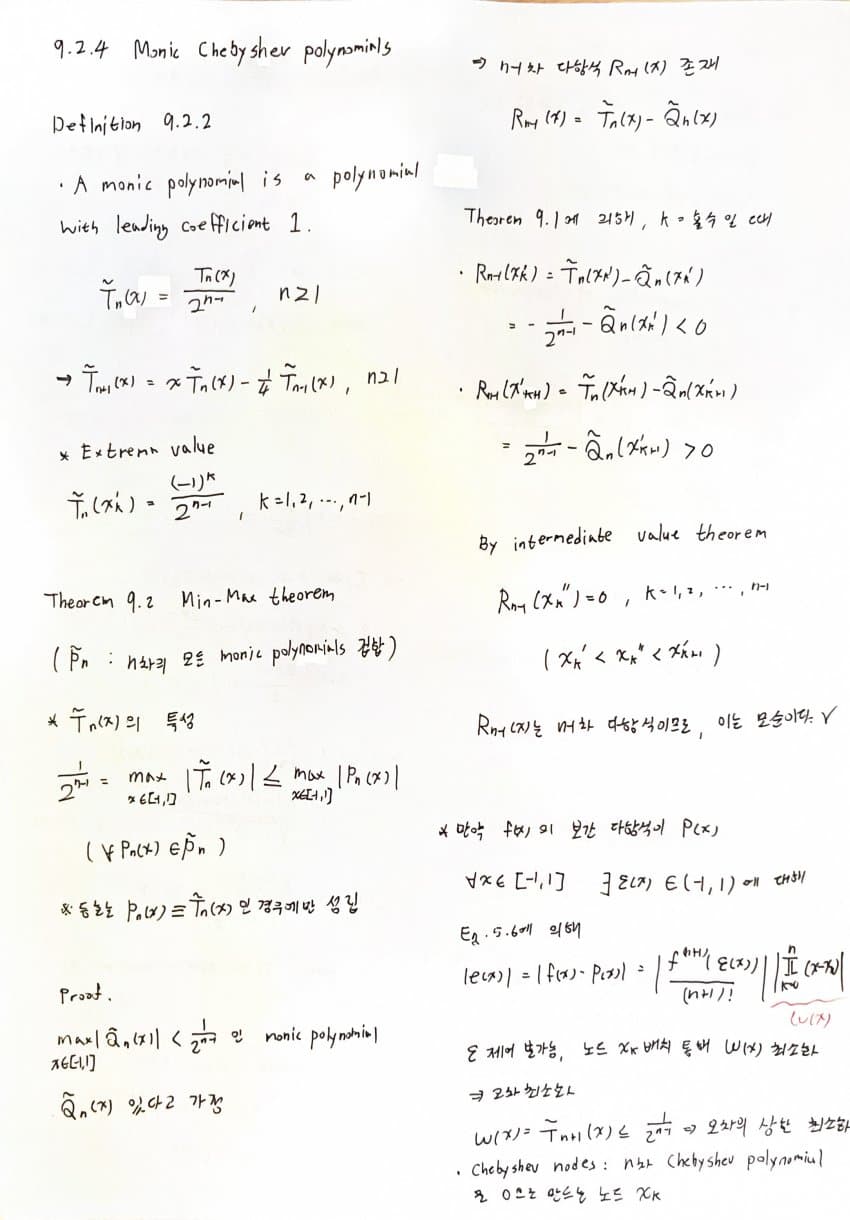 9.2.4 Monic Chebyshev polynomials
Definition 9.2.2
· A monic polynomial is a polynomial
with leading coefficient 1.
T̃n(x) = Tn(x) / 2^(n-1) , n≥1
→ T̃n+1(x) = x T̃n(x) - 1/4 T̃n-1(x) , n≥1
* Extrema value
T̃n(x'k) = (-1)^k / 2^(n-1) , k=1,2,…,n-1
Theorem 9.2 Min-Max theorem
( P̃n : n차의 모든 monic polynomials 집합 )
* T̃n(x)의 특성
1/2^(n-1) = max x∈[-1,1] |T̃n(x)| ≤ max x∈[-1,1] |Pn(x)|
( ∀ Pn(x) ∈ P̃n )
※ 등호는 Pn(x) ≡ T̃n(x) 인 경우에만 성립
Proof.
max x∈[-1,1] |Q̃n(x)| < 1/2^(n-1) 인 monic polynomial
Q̃n(x) 있다고 가정
⇒ n-1차 다항식 Rn-1(x) 존재
Rn-1(x) = T̃n(x) - Q̃n(x)
Theorem 9.1에 의해, k = 홀수일 때
· Rn-1(x'k) = T̃n(x'k) - Q̃n(x'k)
= - 1/2^(n-1) - Q̃n(x'k) < 0
· Rn-1(x'k+1) = T̃n(x'k+1) - Q̃n(x'k+1)
= 1/2^(n-1) - Q̃n(x'k+1) > 0
By intermediate value theorem
Rn-1(xk'') = 0 , k=1,2, …, n-1
( xk' < xk'' < x'k+1 )
Rn-1(x)는 n-1차 다항식이므로, 이는 모순이다. √
* 만약 f(x)의 보간 다항식이 P(x)
∀x∈ [-1,1] ∃ξ(x) ∈ (-1,1) 에 대해
Eq. 5.6에 의해
|e(x)| = |f(x) - P(x)| = | f^(n+1)(ξ(x)) / (n+1)! | | ∏ k=0 n (x-xk) |
ω(x)
ξ 제어 불가능, 노드 xk 배치 통해 ω(x) 최소화
⇒ 오차 최소화
ω(x) = T̃n+1(x) ≤ 1/2^(n-1) ⇒ 오차의 상한 최소화
· Chebyshev nodes : n차 Chebyshev polynomial
을 0으로 만드는 노드 xk